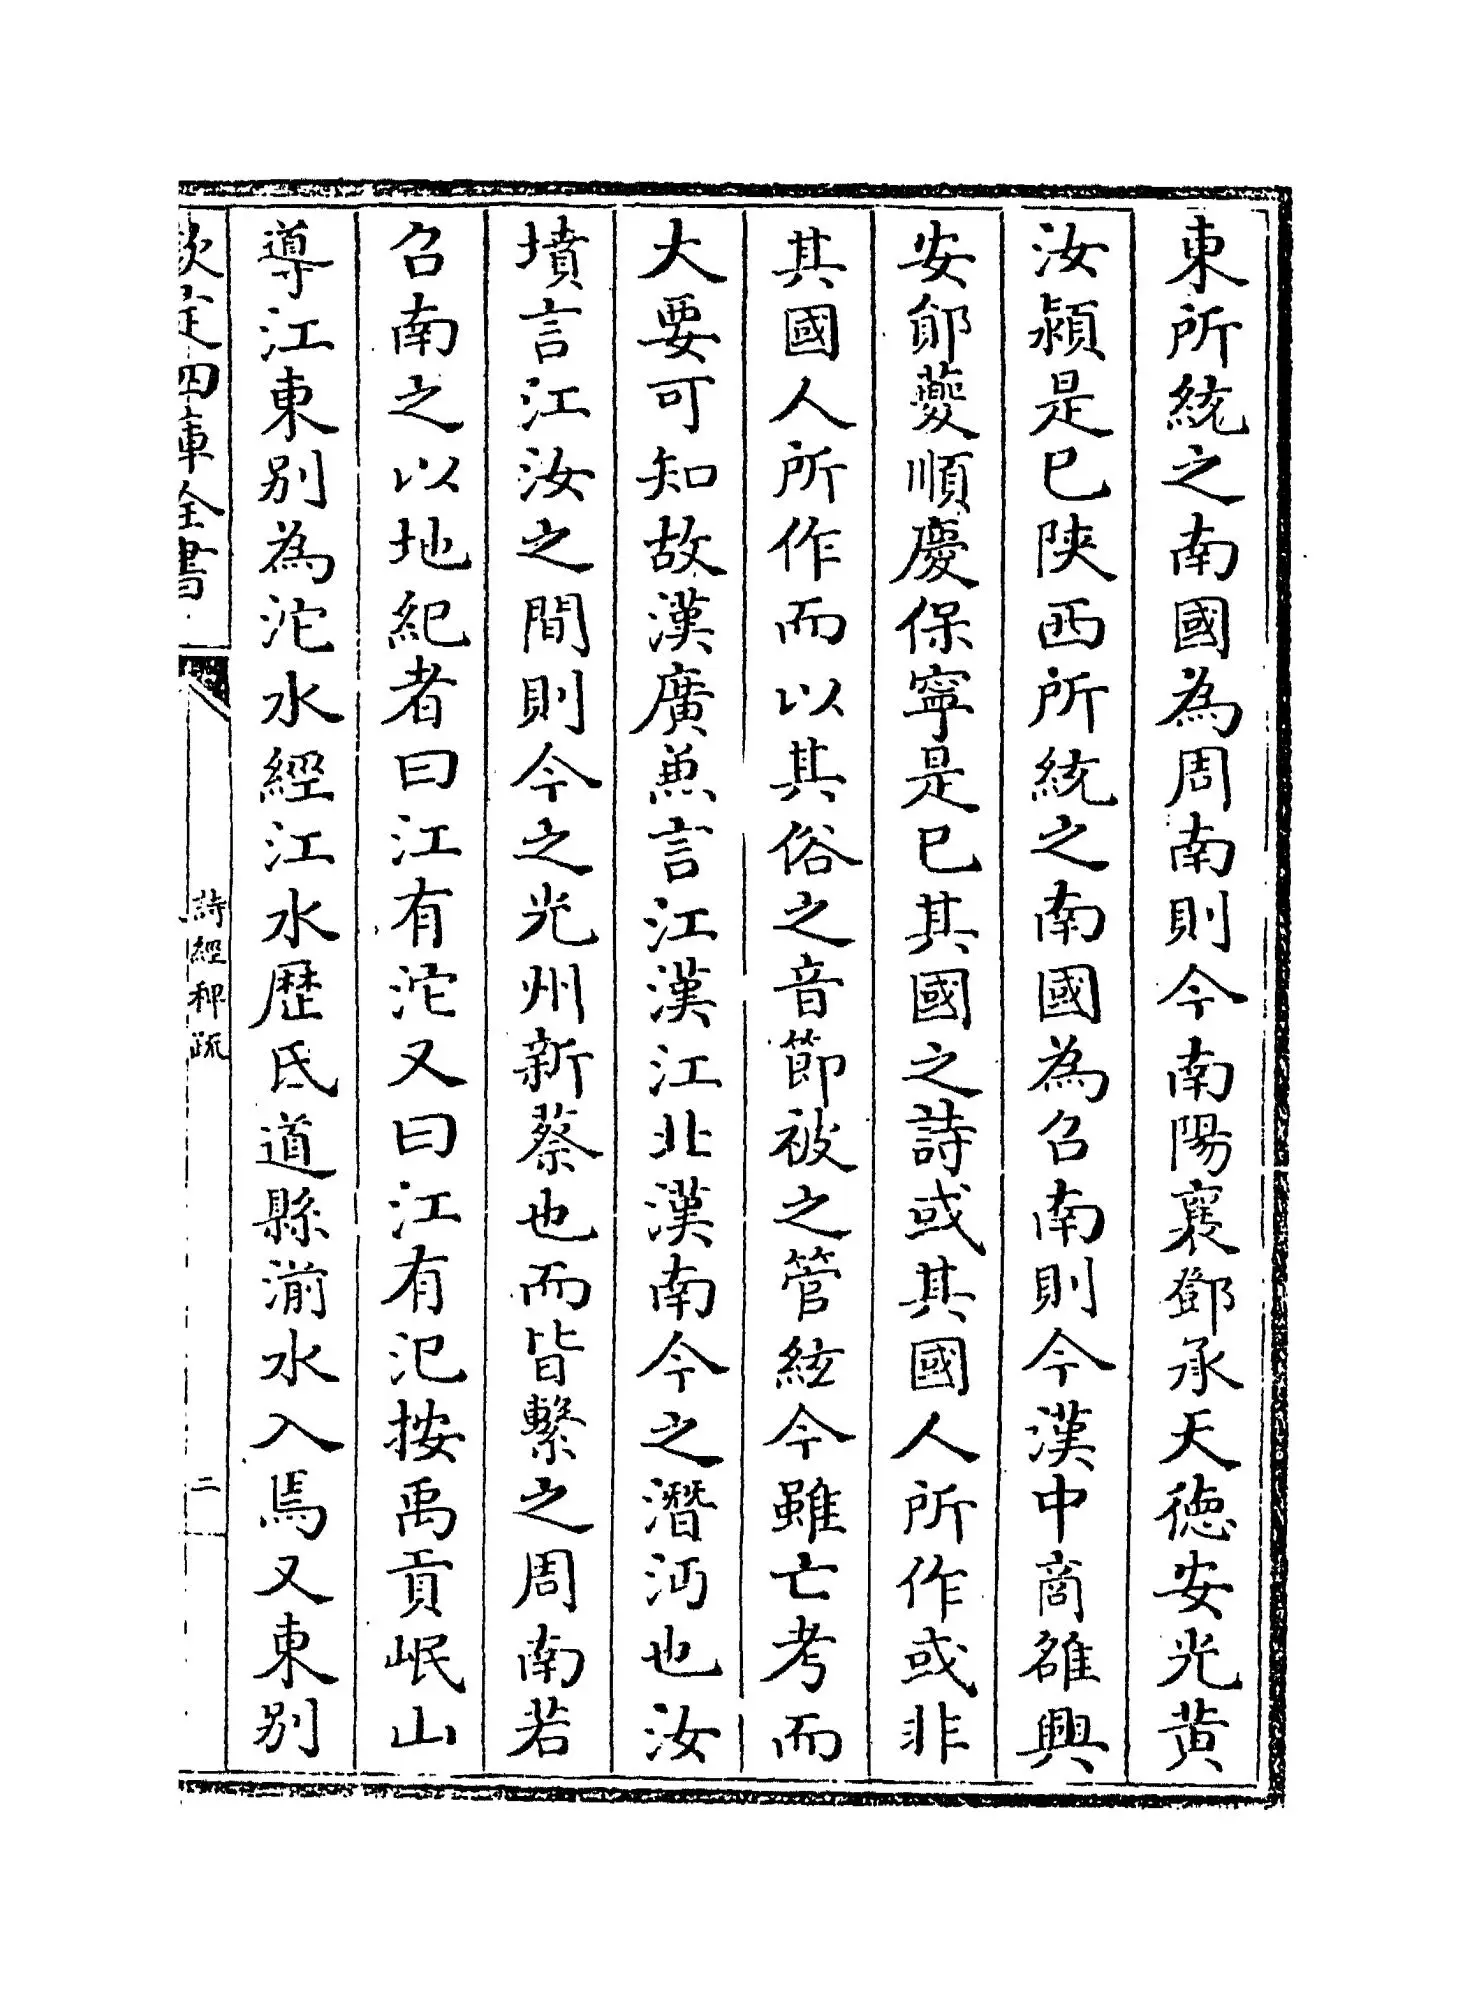 東所統之南國為周南則今南陽襄鄧承天德安光黃
汝潁是已陝西所統之南國為召南則今漢中商雒興
安鄖夔順慶保寧是已其國之詩或其國人所作或非
其國人所作而以其俗之音節被之管絃今雖亡考而
大要可知故漢廣兼言江漢江北漢南今之潛沔也汝
墳言江汝之間則今之光州新蔡也而皆繫之周南若
召南之以地紀者曰江有沱又曰江有汜按禹貢岷山
導江東別為沱水經江水歷氐道縣湔水入焉又東別
欽定四庫全書
詩經稗疏
二